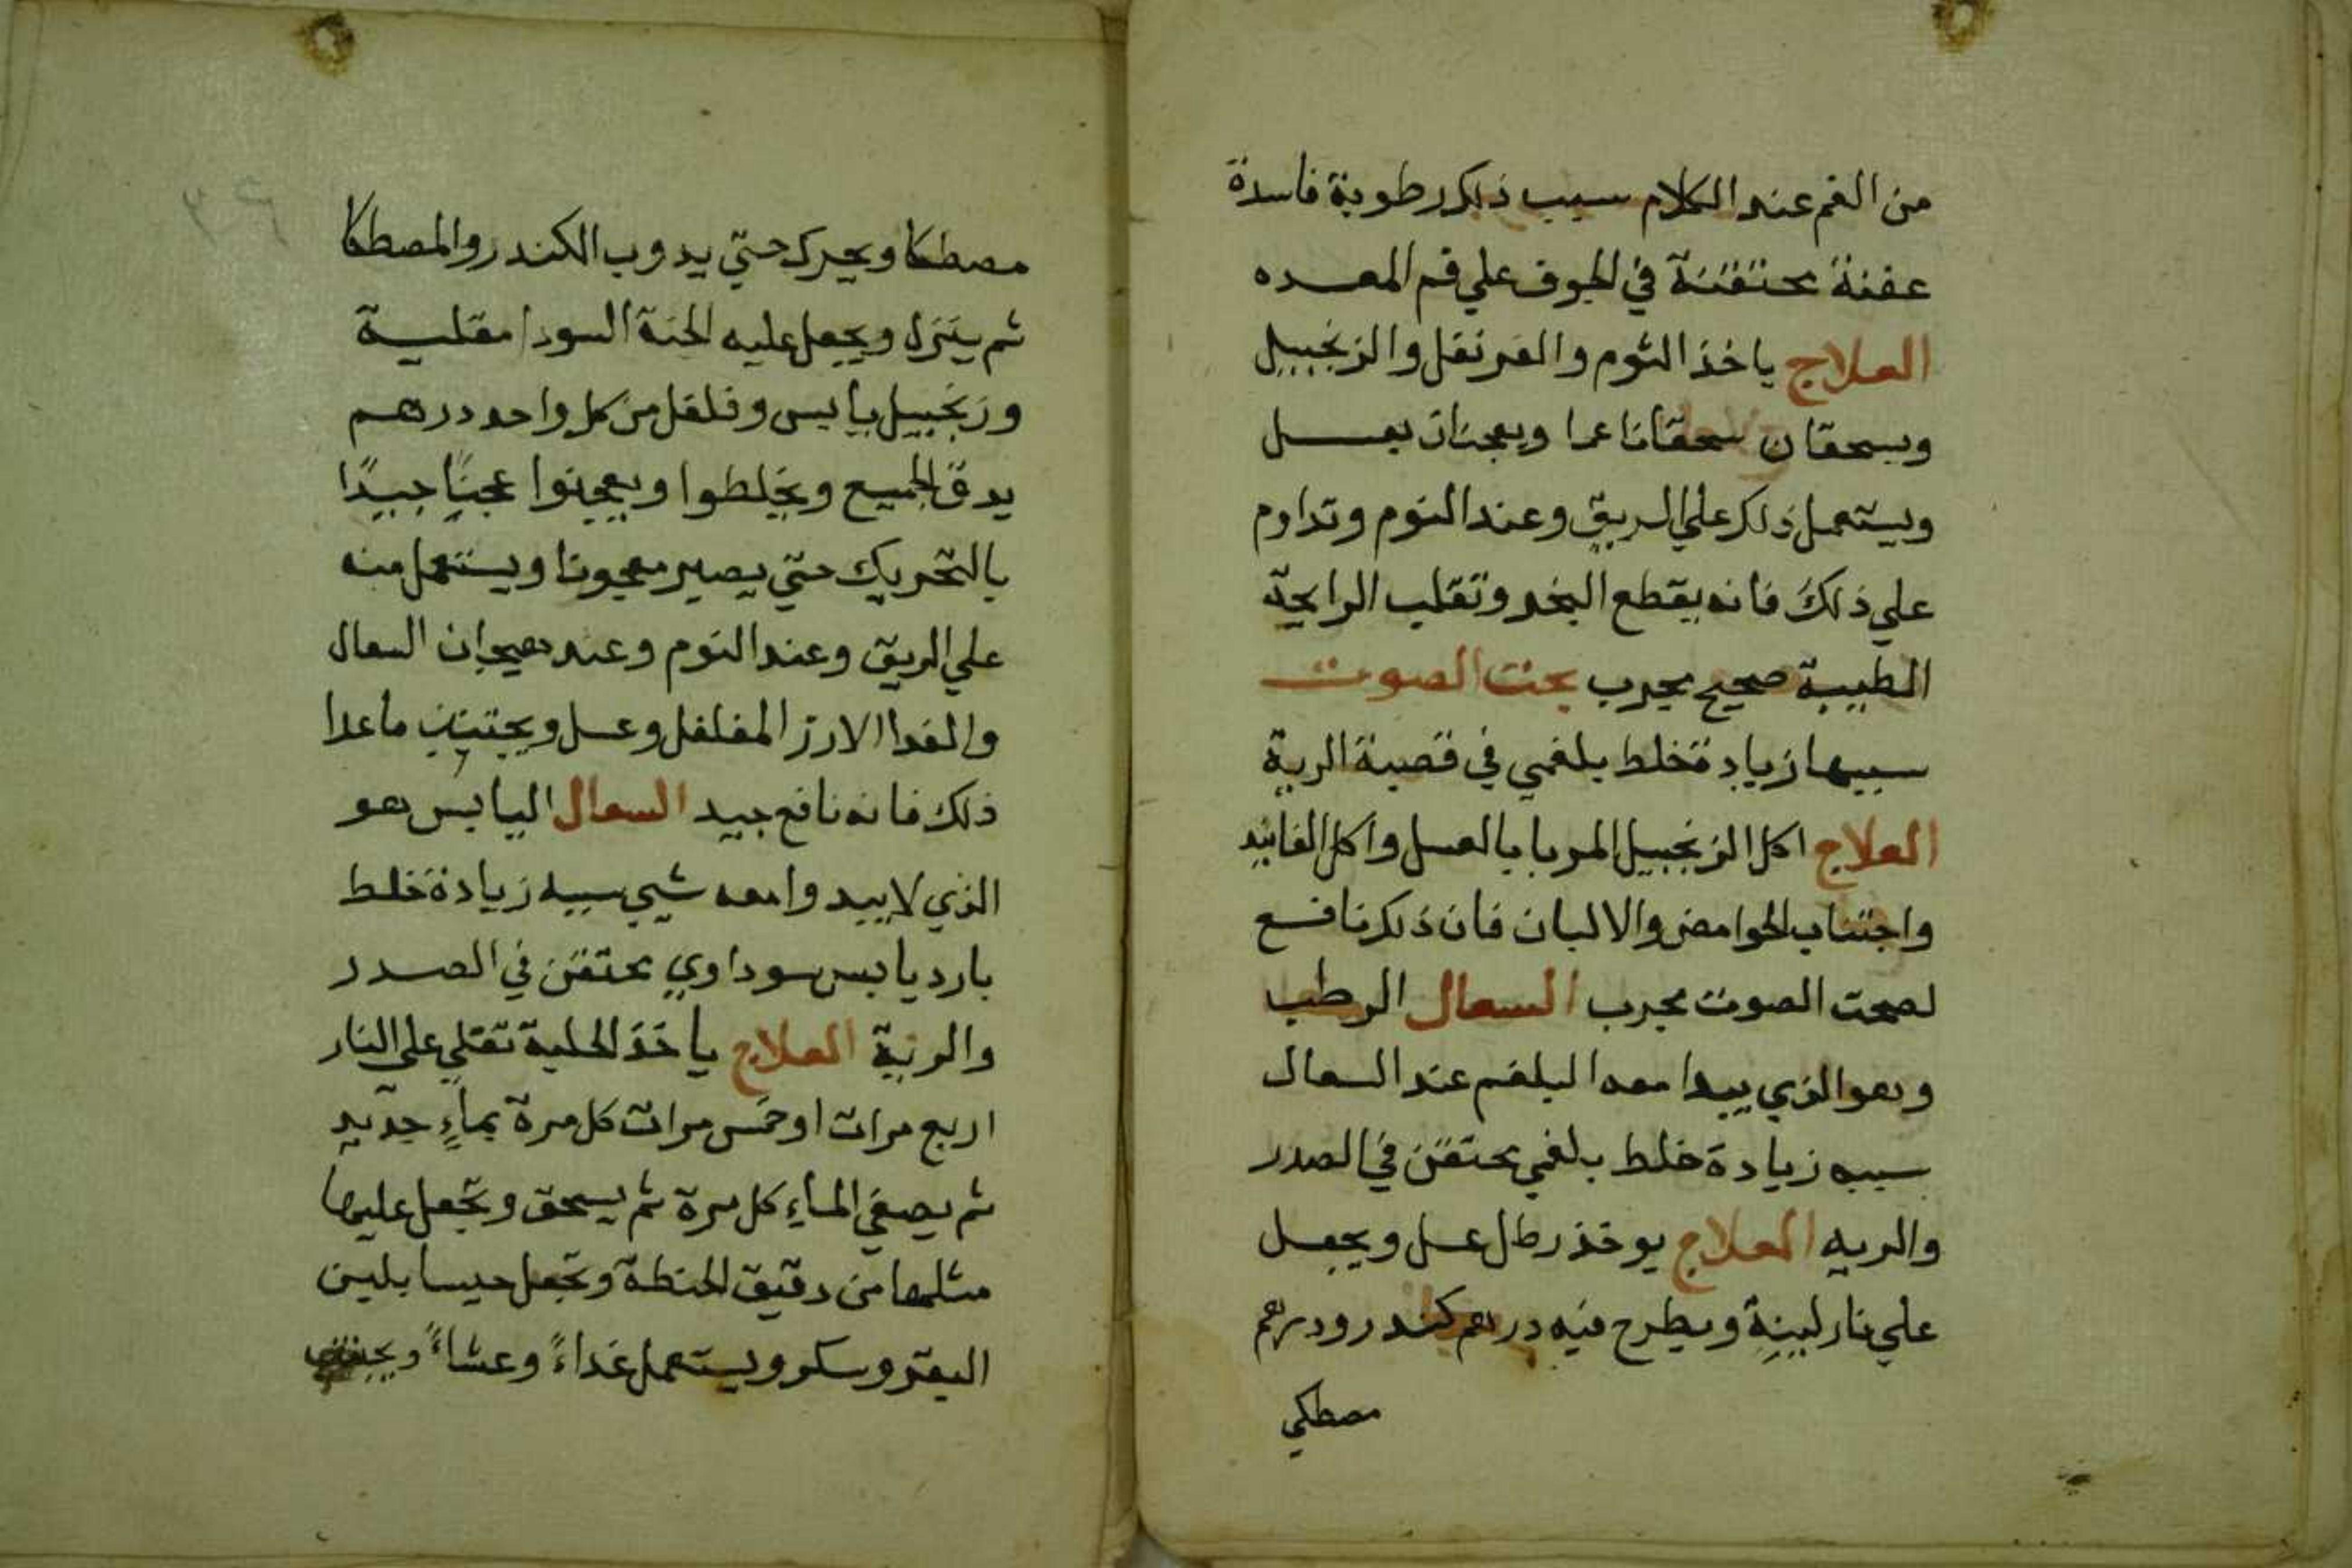 من الفم عند الكلام سبب ذلك رطوبة فاسدة
عفنة محتقنة في الجوف علي فم المعده
العلاج ياخذ الثوم والقرنفل والزنجبيل
ويسحقان سحقا ناعما ويعجنان بعسل
ويستعمل ذلك علي الريق وعند النوم وتداوم
علي ذلك فانه يقطع البخر وتقلب الرايحة
الطيبة صحيح مجرب بحت الصوت
سببها زيادة خلط بلغمي في قصبة الرية
العلاج اكل الزنجبيل المربا بالعسل واكل الفانيد
واجتناب الحوامض والالبان فان ذلك نافع
لصحت الصوت مجرب السعال الرطب
وهو الذي يبدا معه البلغم عند السعال
سببه زيادة خلط بلغمي محتقن في الصدر
والريه العلاج يوخذ رطل عسل ويجعل
علي نار لينة ويطرح فيه درهم كندر ودرهم
مصطكي
مصطكا ويحرك حتي يدوب الكندر والمصطكا
ثم ينزل ويجعل عليه الحبة السودا مقلية
وزنجبيل يابس وفلفل من كل واحد درهم
يدق الجميع ويخلطوا ويعجنوا عجنًا جيدًا
بالتحريك حتي يصير معجونا ويستعمل منه
علي الريق وعند النوم وعند هيجان السعال
والغدا الارز المفلفل وعسل ويجتنب ما عدا
ذلك فانه نافع جيد السعال اليابس هو
الذي لا يبدوا معه شيي سببه زيادة خلط
بارد يابس سوداوي محتقن في الصدر
والرية العلاج ياخذ الحلبة تقلي علي النار
اربع مرات او خمس مرات كل مرة بماءٍ جديد
ثم يصفي الماءِ كل مرة ثم يسحق وتجعل عليها
مثلها من دقيق الحنطة وتجعل حيسا بلبن
البقر وسكر ويستعمل غداءً وعشاءً